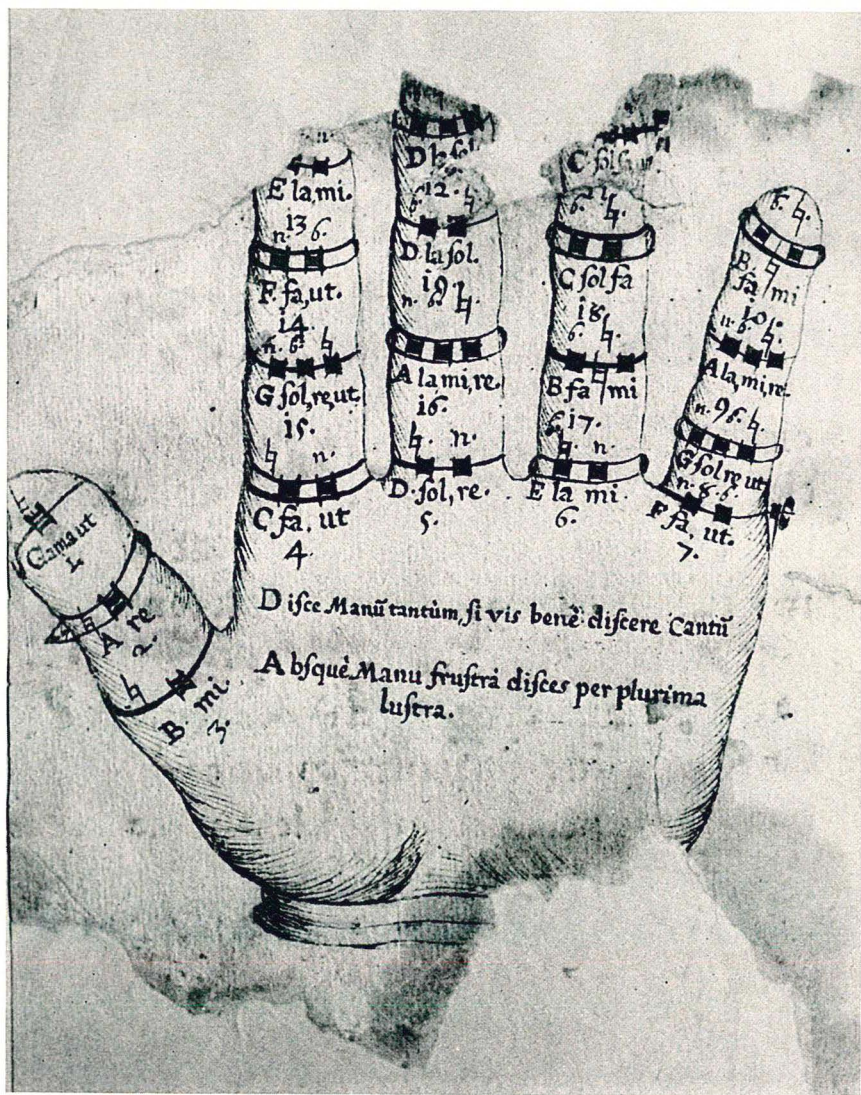 n.
E la, mi.
13
n. 6.
F. fa, ut.
14
n. 6. ♮
G sol, re, ut
15.
♮ n.
C fa, ut
4.
D la sol
12.
6. ♮
D. la sol.
19
n. 6. ♮
A la mi, re.
16.
♮. n.
D. sol, re.
5.
C sol fa
6. ♮.
C sol fa
18.
6. ♮.
B fa ♮ mi
17.
♮. n.
E la mi.
6.
6. ♮.
B. fa ♮ mi
10.
n. 6. ♮.
A la, mi, re.
n. 9 6. ♮
G sol re ut
n. 8. 6.
F fa, ut.
7.
Gama ut
1.
A re
2.
♮
B. mi.
3.
Diſce Manũ tantùm, ſi vis benè diſcere Cantũ
Abſquè Manu fruſtrà diſces per plurima
luſtra.